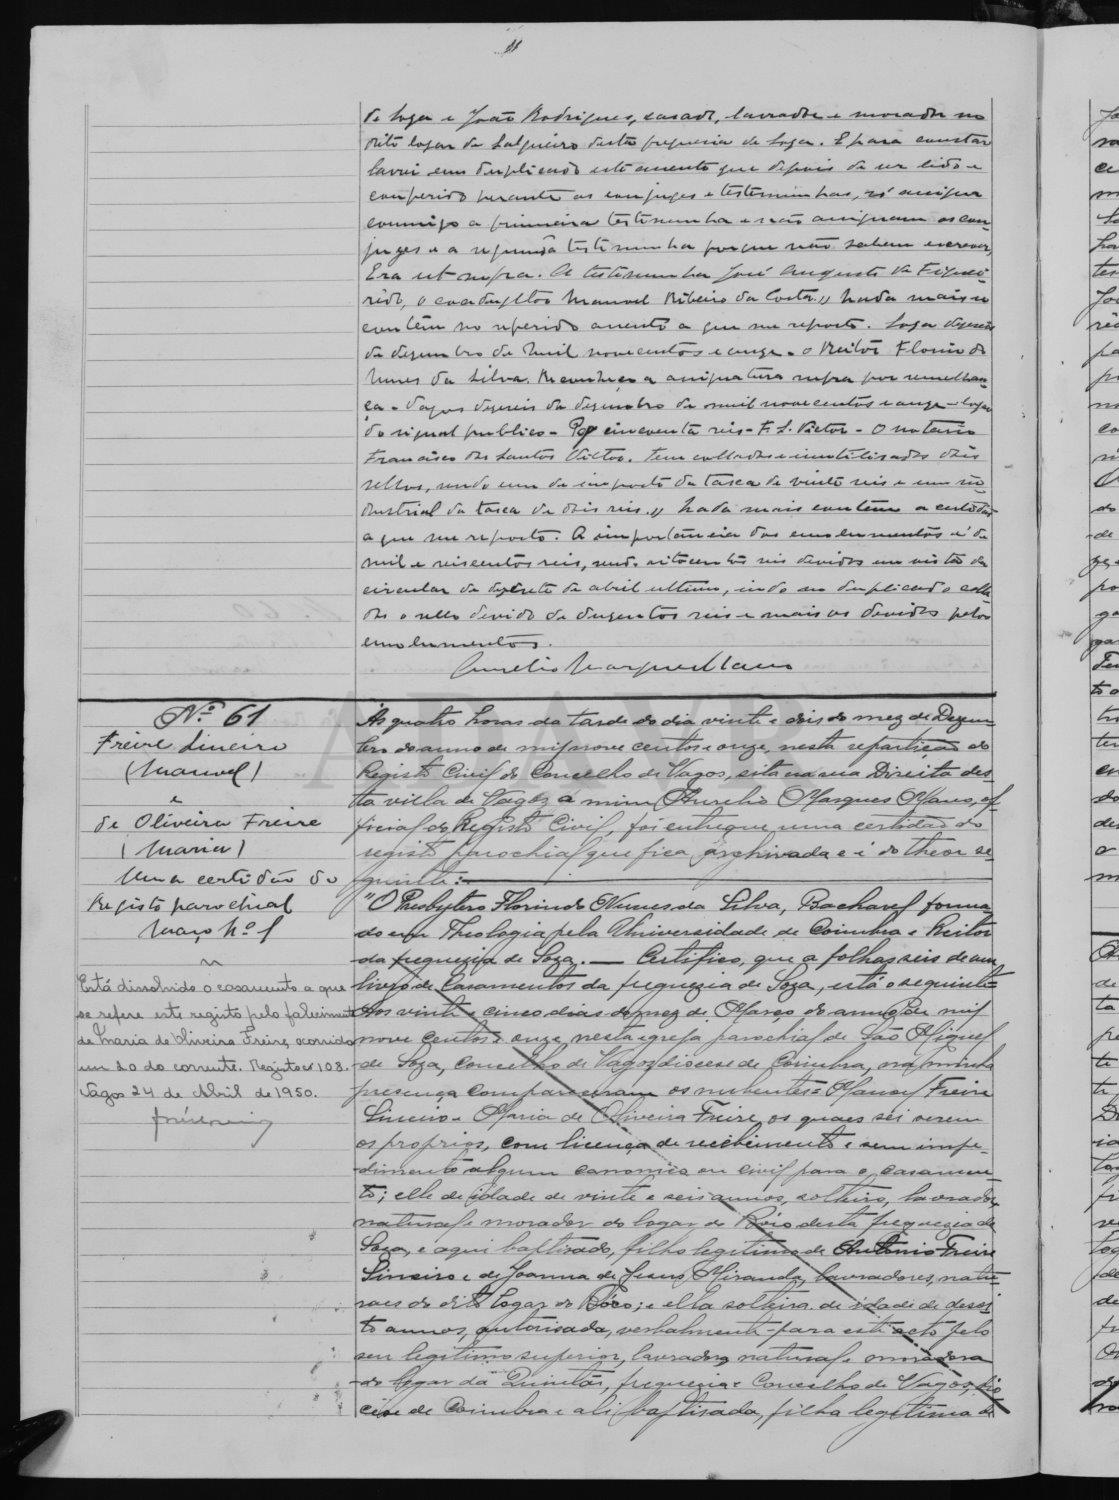 de Soza e João Rodrigues, casado, lavrador e morador no
dito logar de Salgueiro desta freguesia de Soza. E para constar
lavrei em duplicado este assento que depois de ser lido e
conferido perante os conjuges e testemunhas, só assigna
commigo a primeira testemunha e não assignam os con-
juges e a segunda testemunha porque não sabem escrever,
Era ut supra. A testemunha José Augusto de Figuei-
rêdo, o coadjuctor Manuel Ribeiro da Costa.,, Nada mais se
contêm no referido assento a que me reporto. Soza dezeseis
de dezembro de mil novecentos e onze. O Reitor Florindo
Nunes da Silva. Reconheço a assignatura supra por semelhan-
ça. Vagos dezeseis de dezembro de mil novecentos e onze - logar
do signal publico - Pg cincoenta reis - F. S. Victor - O notario
Francisco dos Santos Victor. Tem collados e inutilisados dois
sellos, sendo um de imposto da taxa de vinte reis e um in-
dustrial da taxa de dois reis.,, Nada mais contêm a certidão
a que me reporto. A importancia dos emolumentos é de
mil e seiscentos reis, sendo oitocentos reis devidos em vista da
circular de de abril ultimo, indo no duplicado colla-
do o sello devido de duzentos reis e mais os devidos pelos
emolumentos.
Aurelio Marques Mano
Nº 61
Freire Sineiro
(Manuel)
e
de Oliveira Freire
(Maria)
Uma certidão do
Registo parochial
Maço Nº 1
Está dissolvido o casamento a que
se refere este registo pelo falecimento
de Maria de Oliveira Freire, ocorrido
em 20 do corrente. Registo nº 108.
Vagos 24 de Abril de 1950.
Ás quatro horas da tarde do dia vinte e dois do mez de Dezem-
bro do anno de mil nove centos e onze, nesta repartição do
Registo Civil do Concelho de Vagos, sita na rua Direita des-
ta villa de Vagos a mim Aurelio Marques Mano, of-
ficial do Registo Civil, foi entregue uma certidão do
registo parochial que fica archivada e é do theor se-
guinte:
"O Presbytero Florindo Nunes da Silva, Bacharel forma-
do em Theologia pela Universidade de Coimbra e Reitor
da freguezia de Soza. — Certifico, que a folhas seis de um
livro de Casamentos da freguezia de Soza, está o seguinte =
Aos vinte e cinco dias do mez de Março do anno de mil
nove centos e onze, nesta egreja parochial de São Miguel
de Soza, concelho de Vagos, diocese de Coimbra, na minha
presença compareceram os nubentes = Manoel Freire
Sineiro e Maria de Oliveira Freire, os quaes sei serem
os proprios, com licença de recebimento e sem impe-
dimento algum canonico ou civil para o casamen-
to; elle de idade de vinte e seis annos, solteiro, lavrador,
natural e morador do logar do desta freguezia de
Soza, e aqui baptisado, filho legitimo de Antonio Freire
Sineiro e de Joanna de Jesus Miranda, lavradores, natu-
raes do dito logar do e ella solteira de idade de desoi-
to annos, autorisada, verbalmente para este acto pelo
seu legitimo superior, lavradora, natural e moradora
do logar da Quintã, freguezia e Concelho de Vagos, dio-
cese de Coimbra e ali baptisada, filha legitima de